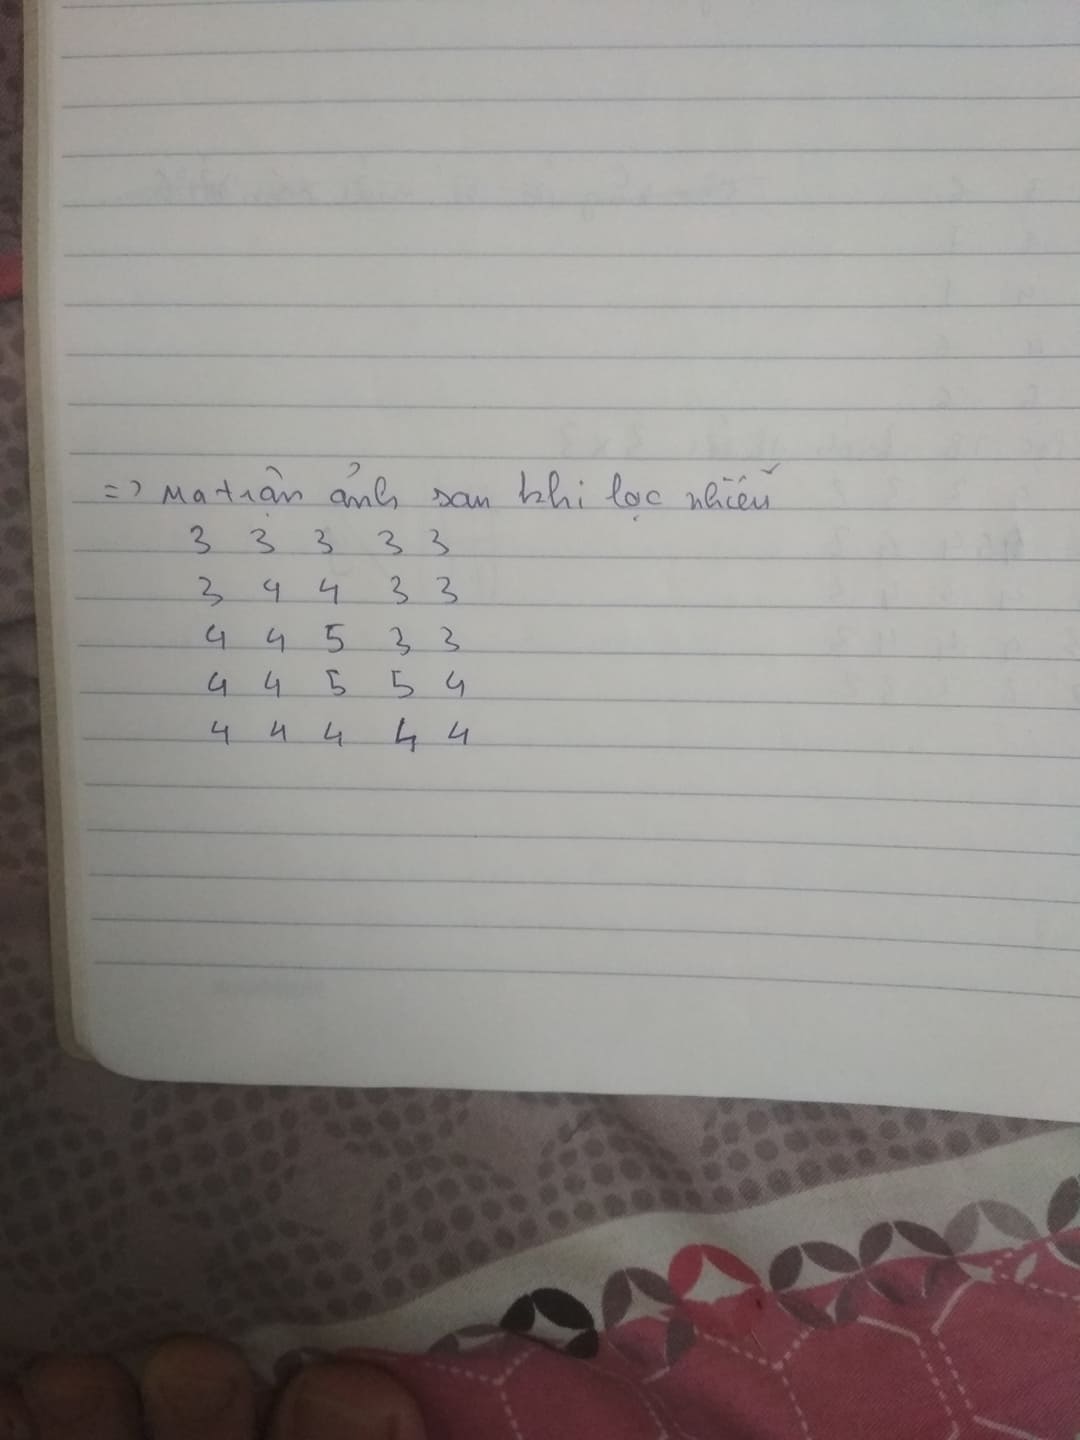 => Ma trận ảnh sau khi lọc nhiễu
3 3 3 3 3
3 4 4 3 3
4 4 5 3 3
4 4 5 5 4
4 4 4 4 4